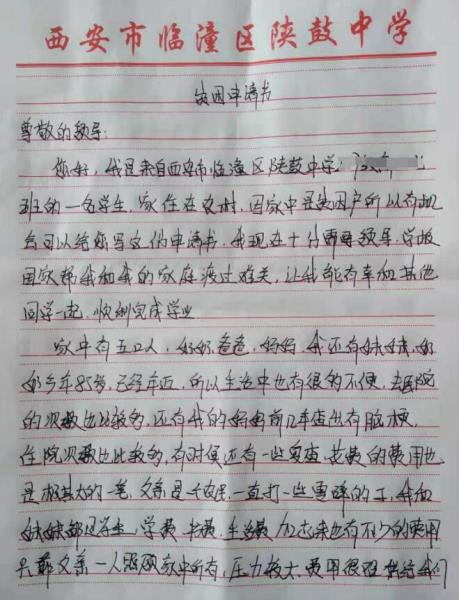 西安市临潼区陕鼓中学
贫困申请书
尊敬的领导:
您好,我是来自西安市临潼区陕鼓中学,
班的一名学生,家住在农村,因家中是贫困户所以有机
会可以给您写文份申请书,我现在十分需要领导,学校
国家帮我和我的家庭渡过难关,让我能有幸和其他
同学一起,顺利完成学业
家中有五口人,奶奶,爸爸,妈妈,我还有妹妹,奶
奶今年85岁,已经年迈,所以生活中也有很多不便,去医院
的次数也比较多,还有我的妈妈前几年查出有脑梗,
住院次数也比较多,有时候还有一些复查,药费的费用也
是极其大的一笔,父亲是个农民,一直打一些零碎的工,我和
妹妹都是学生,学费,书费,生活费加起来也有不少的费用
只靠父亲一人照顾家中所有,压力较大,费用很难供给我们